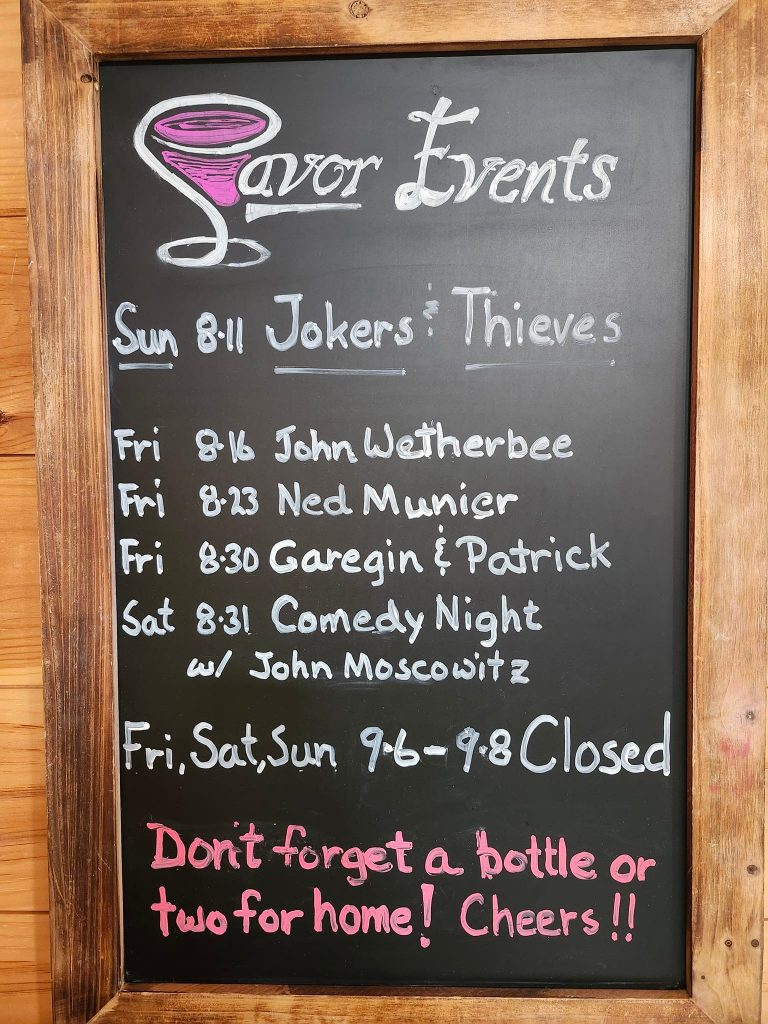 Savor Events
Sun 8·11 Jokers & Thieves
Fri 8·16 John Wetherbee
Fri 8·23 Ned Munier
Fri 8·30 Garegin & Patrick
Sat 8·31 Comedy Night
w/ John Moscowitz
Fri, Sat, Sun 9·6 – 9·8 Closed
Don't forget a bottle or
two for home! Cheers!!